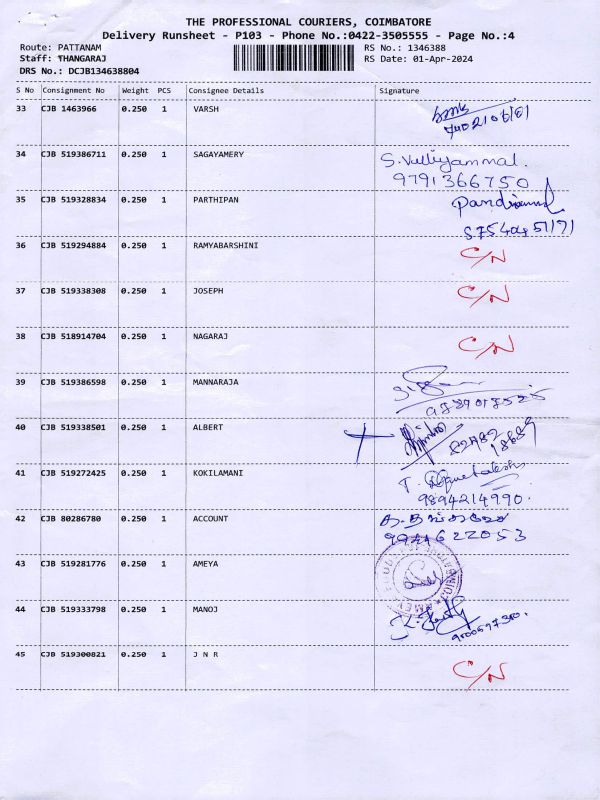 THE PROFESSIONAL COURIERS, COIMBATORE
Delivery Runsheet - P103 - Phone No.:0422-3505555 - Page No.:4
Route: PATTANAM RS No.: 1346388
Staff: THANGARAJ RS Date: 01-Apr-2024
DRS No.: DCJB134638804
S No Consignment No Weight PCS Consignee Details Signature
33 CJB 1463966 0.250 1 VARSH
34 CJB 519386711 0.250 1 SAGAYAMERY S. Valliyammal.
9791366750
35 CJB 519328834 0.250 1 PARTHIPAN
36 CJB 519294884 0.250 1 RAMYABARSHINI C/N
37 CJB 519338308 0.250 1 JOSEPH C/N
38 CJB 518914704 0.250 1 NAGARAJ C/N
39 CJB 519386598 0.250 1 MANNARAJA
40 CJB 519338501 0.250 1 ALBERT
41 CJB 519272425 0.250 1 KOKILAMANI
9894214990.
42 CJB 80286780 0.250 1 ACCOUNT
43 CJB 519281776 0.250 1 AMEYA
44 CJB 519333798 0.250 1 MANOJ
45 CJB 519300821 0.250 1 J N R C/N